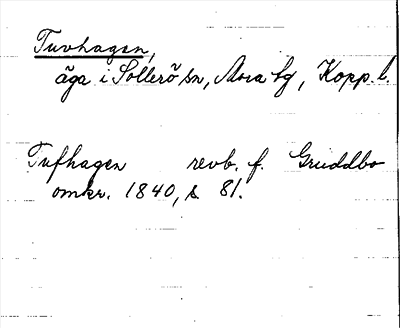 Tuvhagen,
äga i Sollerö sn, Mora tg, Kopp. l.
Tufhagen revb. f. Gruddbo
omkr. 1840, s 81.